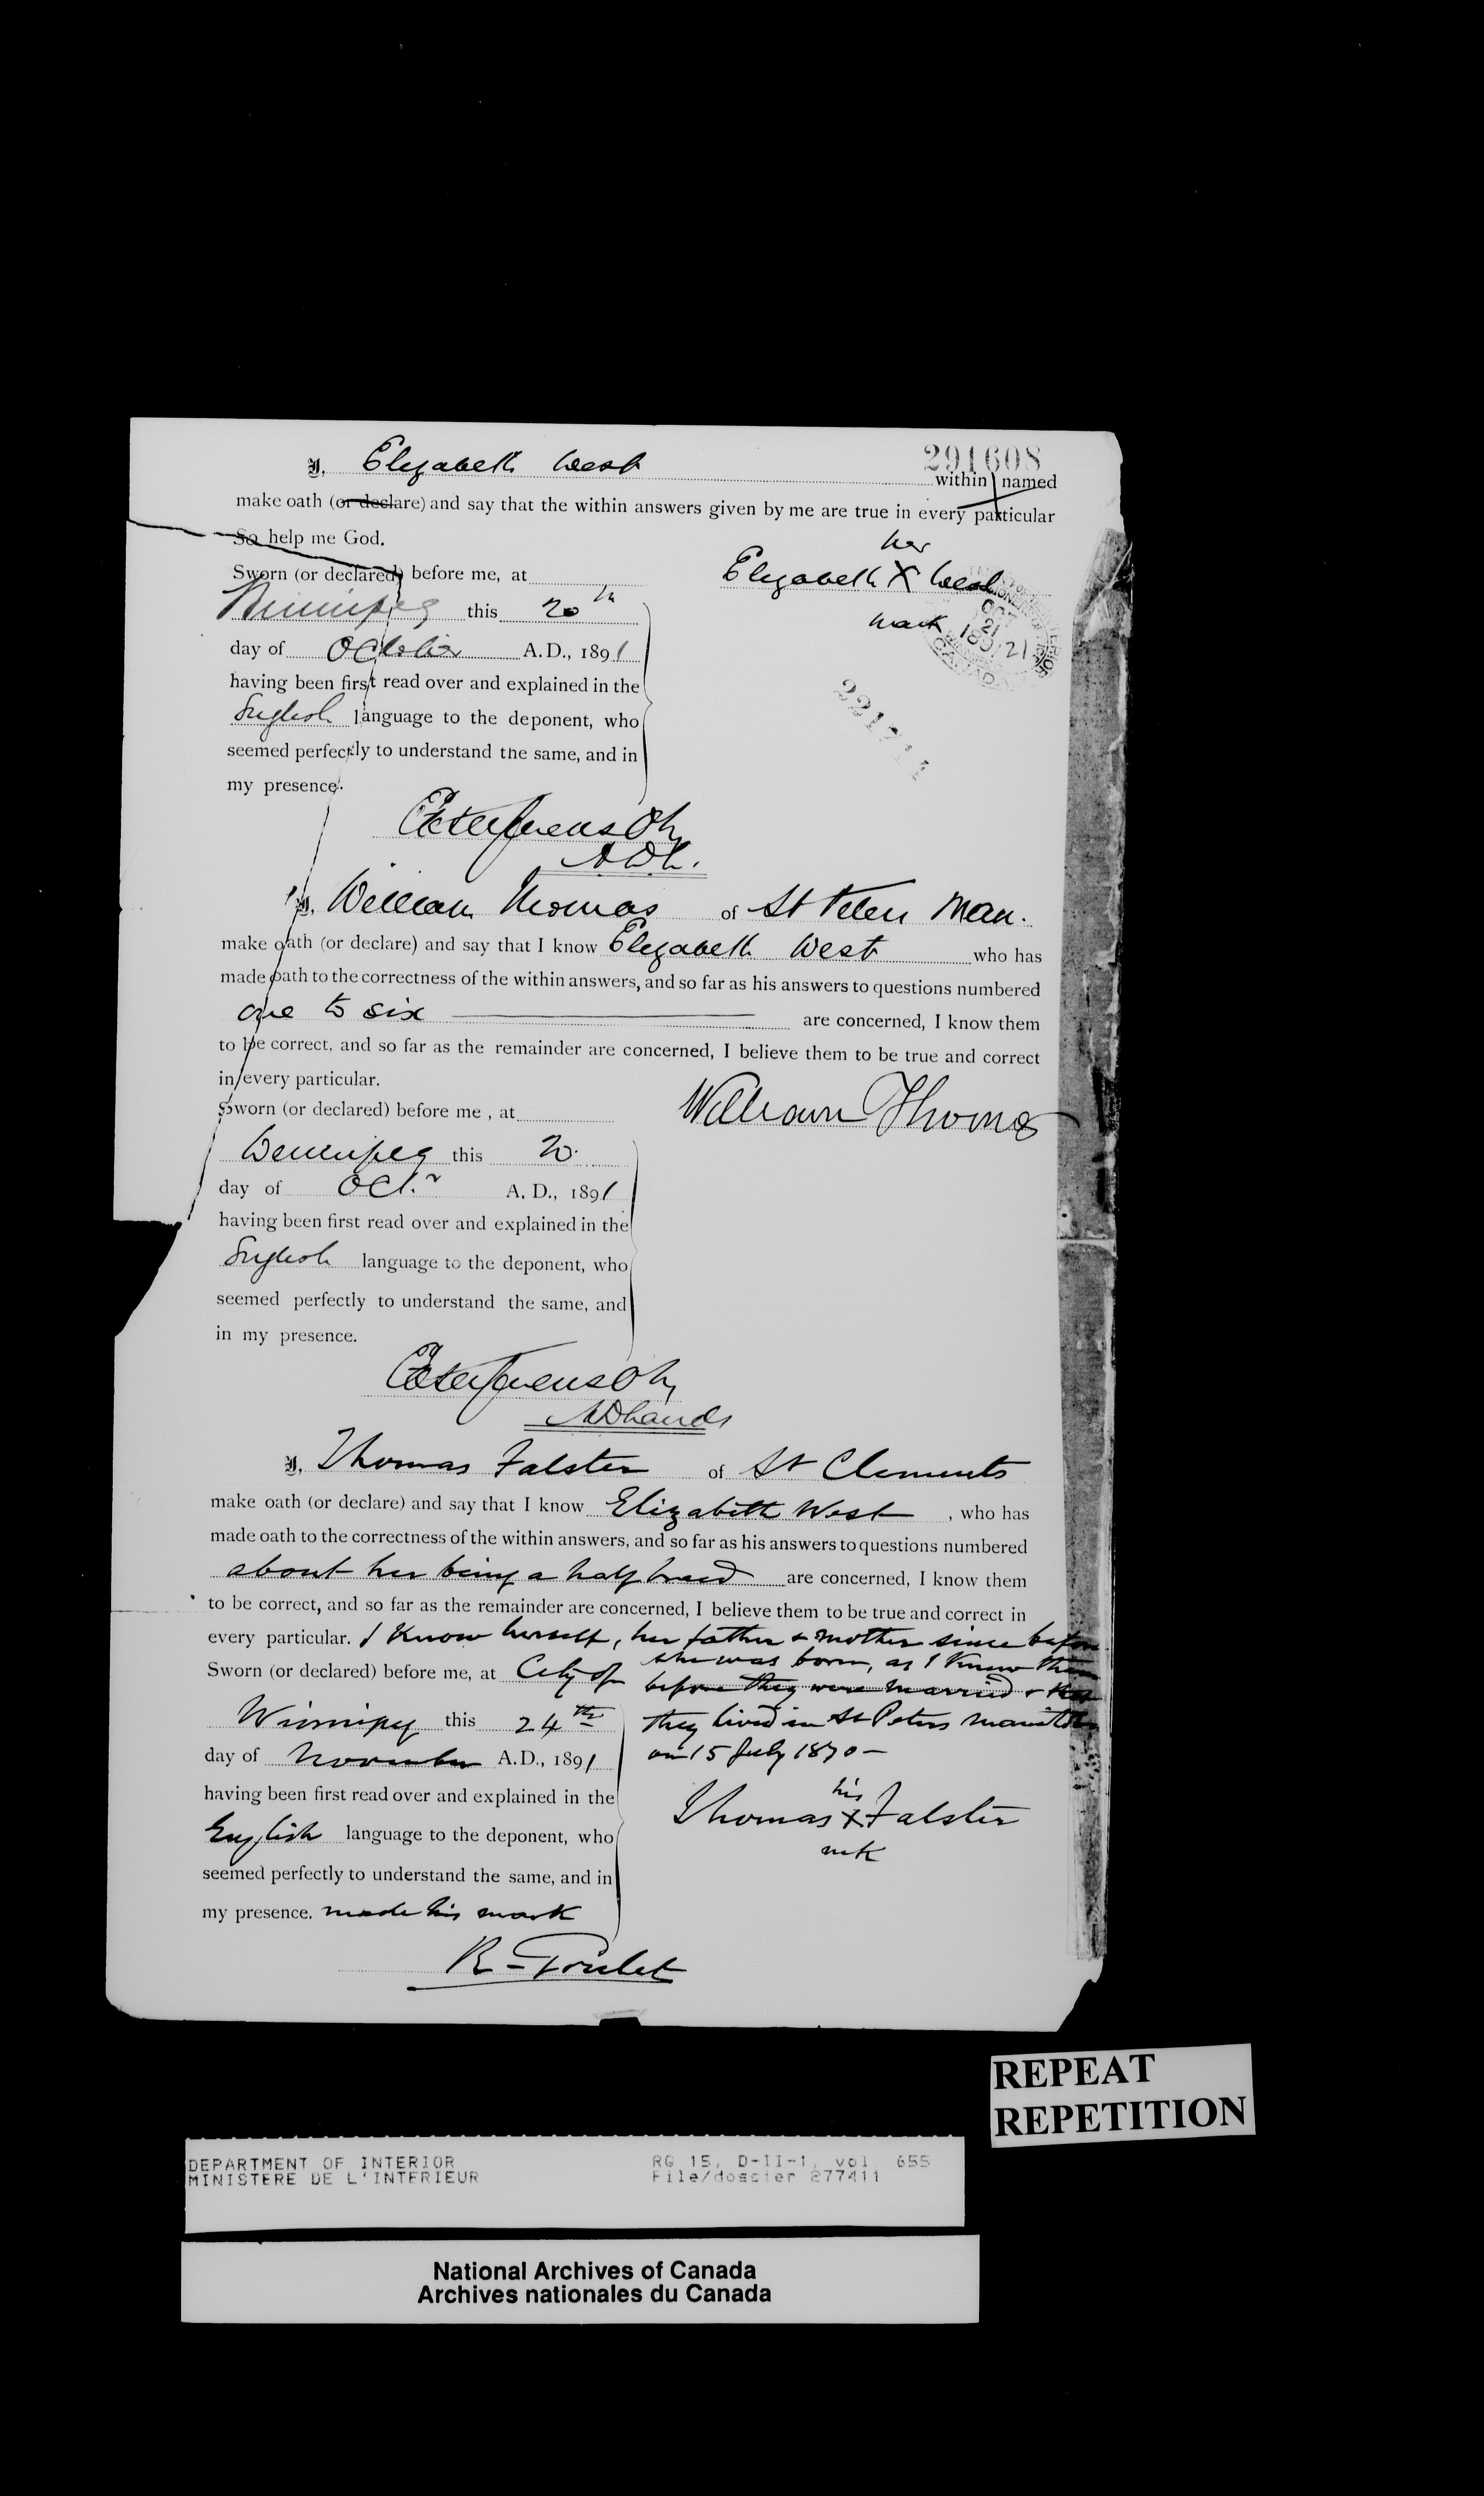 291608
I, Elizabeth West within named
make oath (or declare) and say that the within answers given by me are true in every particular
So help me God.
her
Elizabeth X West
mark
Sworn (or declared) before me, at
Winnipeg this 20th
day of October A.D., 1891
having been first read over and explained in the
English language to the deponent, who
seemed perfectly to understand the same, and in
my presence.
OCT
21
1891
CANADA
I, William Thomas of St Peters Man.
make oath (or declare) and say that I know Elizabeth West who has
made oath to the correctness of the within answers, and so far as his answers to questions numbered
one to six are concerned, I know them
to be correct, and so far as the remainder are concerned, I believe them to be true and correct
in every particular.
William Thomas
Sworn (or declared) before me, at
Winnipeg this 20.
day of Octr A. D., 1891
having been first read over and explained in the
English language to the deponent, who
seemed perfectly to understand the same, and
in my presence.
I, Thomas Falster of St Clements
make oath (or declare) and say that I know Elizabeth West, who has
made oath to the correctness of the within answers, and so far as his answers to questions numbered
about her being a half breed are concerned, I know them
to be correct, and so far as the remainder are concerned, I believe them to be true and correct in
every particular. I know herself, her father & mother since before
she was born, as I knew them
before they were married & that
they lived in St Peters Manitoba
on 15 July 1870 –
Sworn (or declared) before me, at City of
Winnipeg this 24th
day of November A.D., 1891
having been first read over and explained in the
English language to the deponent, who
seemed perfectly to understand the same, and in
my presence. made his mark
his
Thomas X Falster
mk
R. Goulet
REPEAT
REPETITION
DEPARTMENT OF INTERIOR
MINISTERE DE L'INTERIEUR
RG 15, D-II-1, vol 655
File/dossier 277411
National Archives of Canada
Archives nationales du Canada